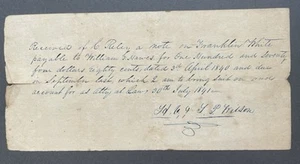 Received of C. Riley a note on Franklin White
payable to William Graves for One Hundred and Seventy
four dollars eighty cents, dated 3rd April 1840 and due
in September last, which I am to bring suit on and
account for as atty at Law, 20th July 1841
S. P. Watson